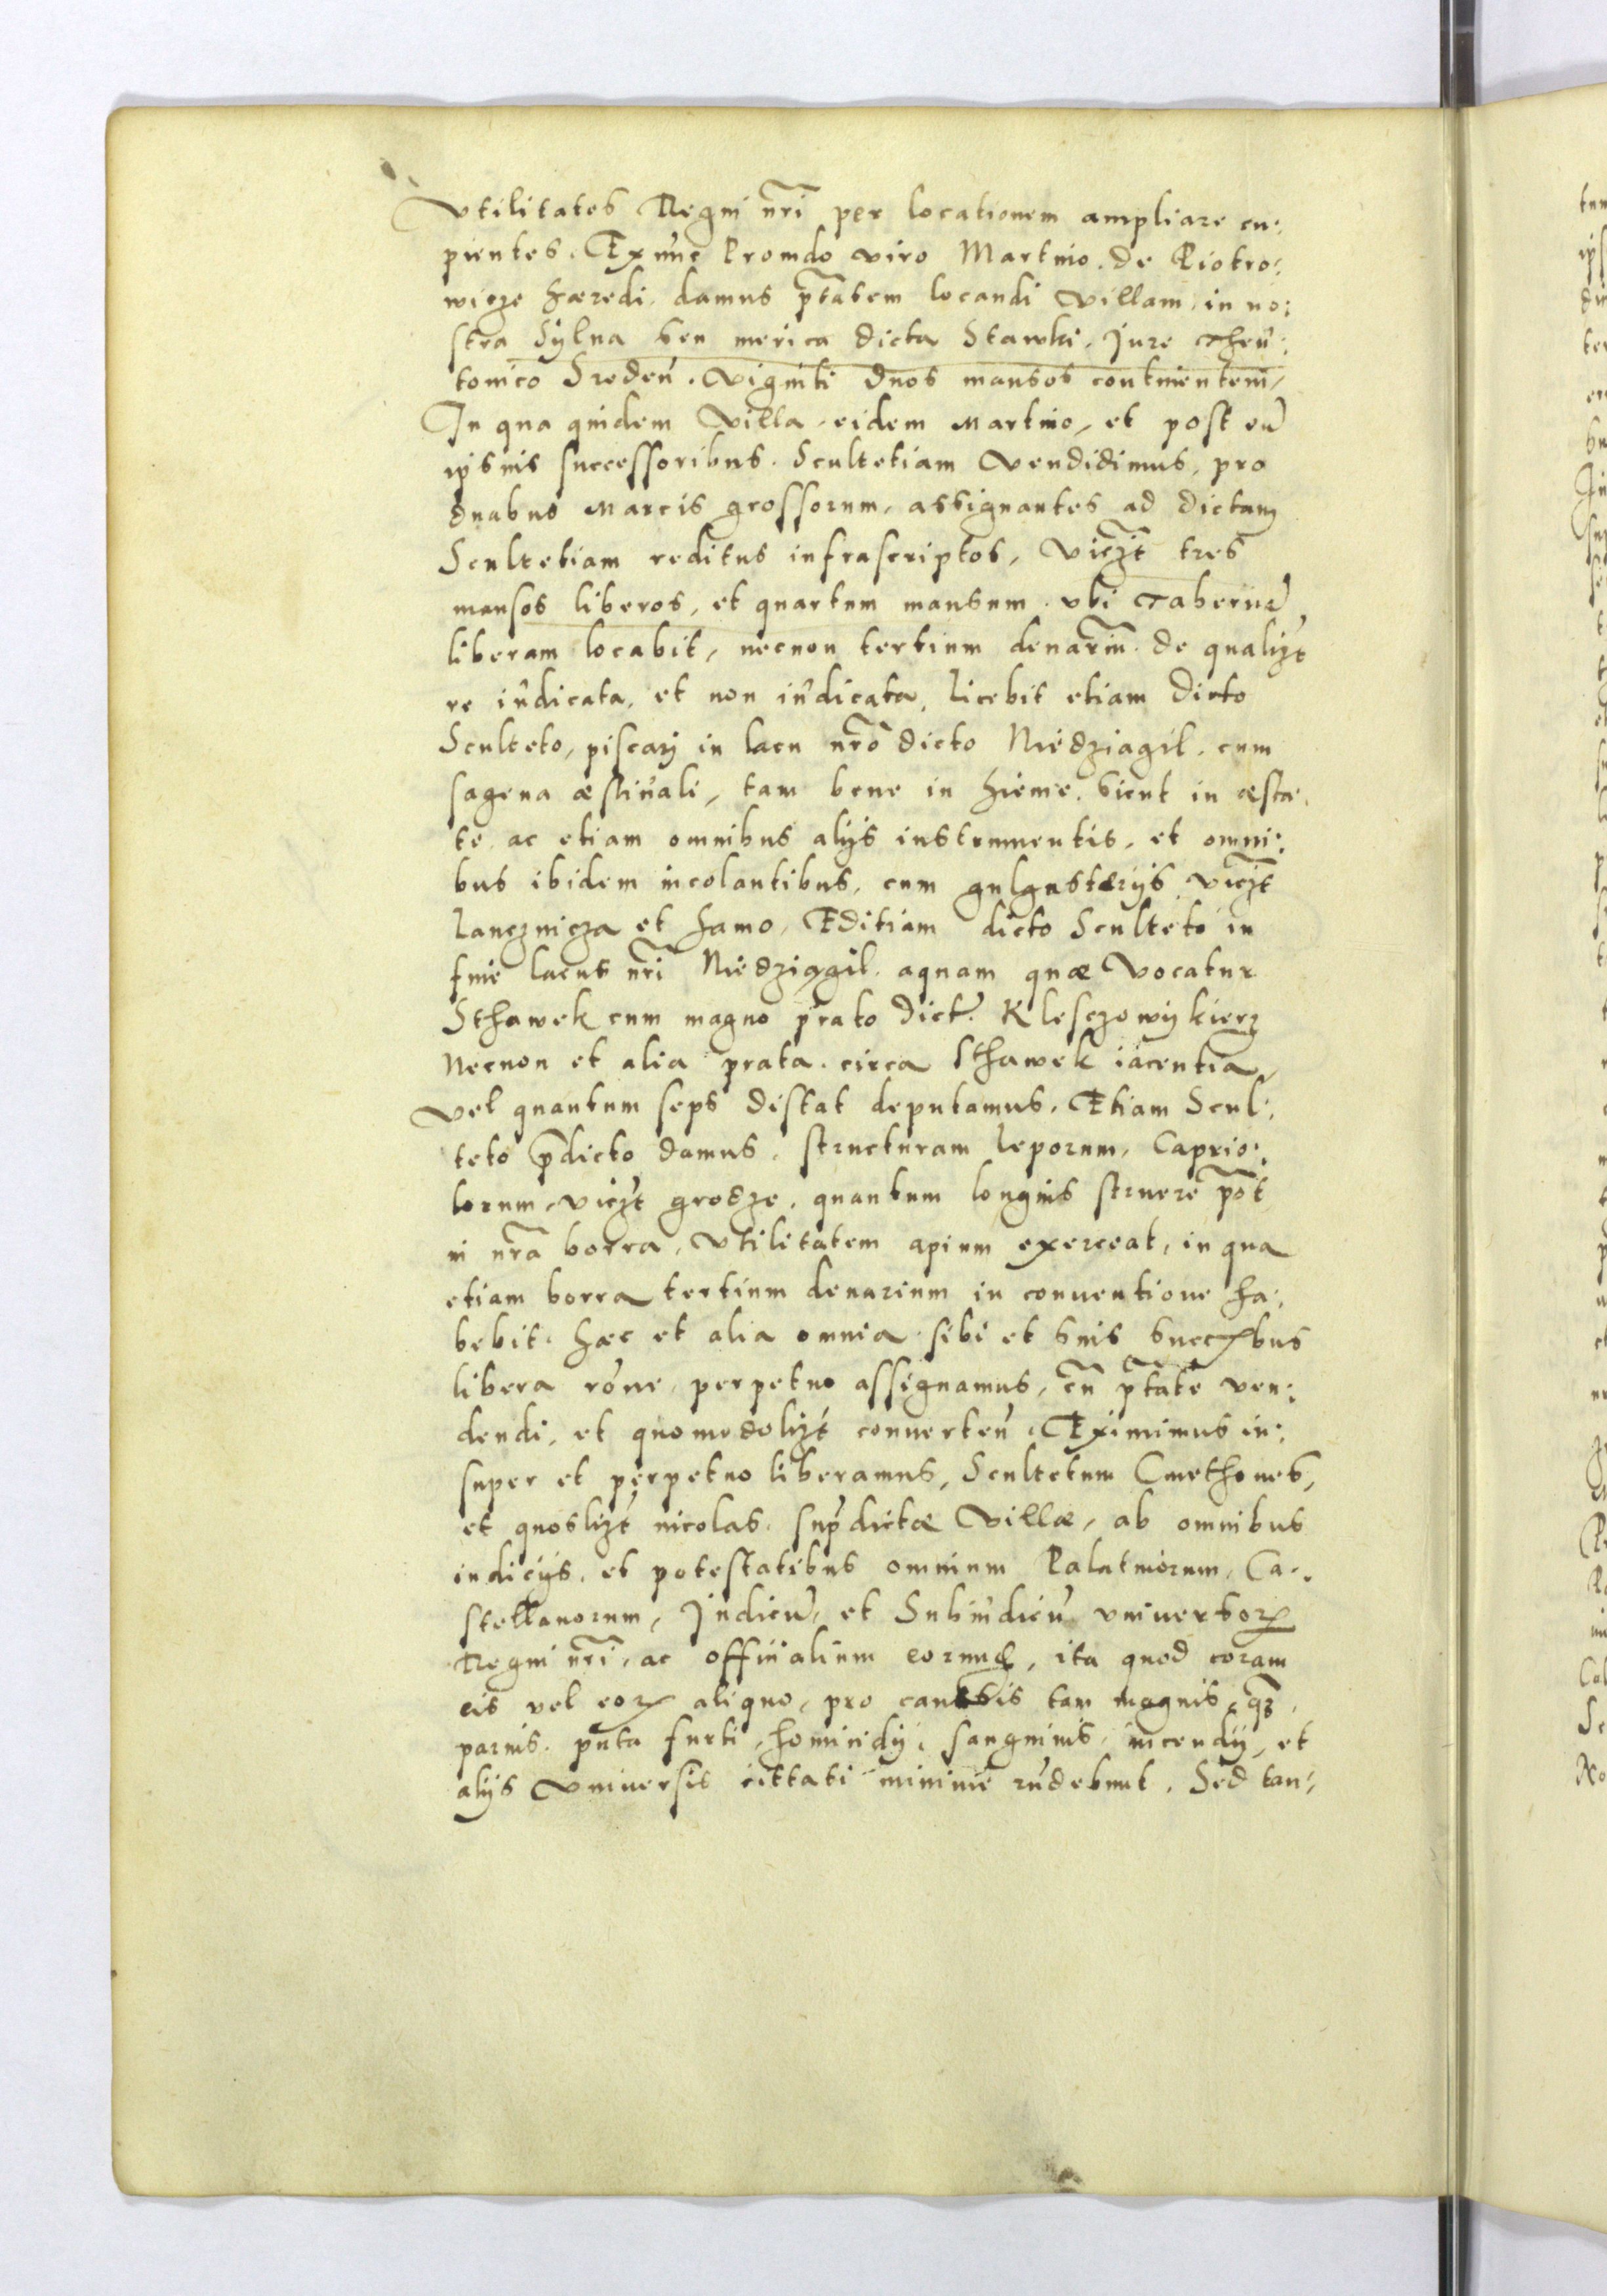 Vtilitates Regni nr̃i per locationem ampliare cu:
pientes. Ex nũc Prouido viro Martino de Piotro:
wicze hæredi damus p̃tatem locandi villam in no:
stra Sylua seu merica dicta Stawki, Jure Theu:
tonico Sredeñ. Viginti duos mansos continentem,
In qua quidem Villa eidem Martino, et post eũ
ipsius successoribus. Scultetiam Vendidimus, pro
duabus Marcis grossorum, assignantes ad dictam
Scultetiam reditus infrascriptos, Viczt̃ tres
mansos liberos, et quartum mansum vbi Tabernã
liberam locabit, necnon tertium denariũ de qualizt
re iudicata, et non iudicata, licebit etiam dicto
Sculteto, piscarj in lacu nr̃o dicto Niedziagil cum
sagena æstiuali, tam bene in hieme sicut in æsta:
te, ac etiam omnibus alijs instrumentis, et omni:
bus ibidem incolantibus, cum gulgustærijs viczt̃
lancznicza et hamo, Editiam dicto Sculteto in
fine lacus nr̃i Niedziagil aquam quæ Vocatur
Sthawek cum magno prato dict̃ Klesczowy kierz
Necnon et alia prata circa Sthawek iacentia,
Vel quantum seps distat deputamus, Etiam Scul:
teto p̃dicto damus structuram leporum, Caprio:
lorum, viczt grodze, quantum longius struere põt
in nr̃a borra, Vtilitatem apium exerceat, in qua
etiam borra tertium denarium in conuentione ha:
bebit. hæc et alia omnia sibi et suis succꝝbus
libera rõne, perpetuo assignamus, cũ p̃tate ven:
dendi, et quomodolizt conuerteñ. Eximimus in:
super et perpetuo liberamus, Scultetum Cmethones,
et quoslizt incolas sup̃dictæ Villæ, ab omnibus
iudicijs, et potestatibus omnium Palatinorum, Ca:
stellanorum, Judicũ, et Subiudicũ vniuersoꝝ
Regni nr̃i, ac officialium eorum, ita quod coram
eis vel eoꝝ aliquo, pro causis tam magnis qꝫ
paruis puta furti, homicidij, sanguinis, incendij, et
alijs Vniuersis cittati minime rñdebunt. Sed tan: